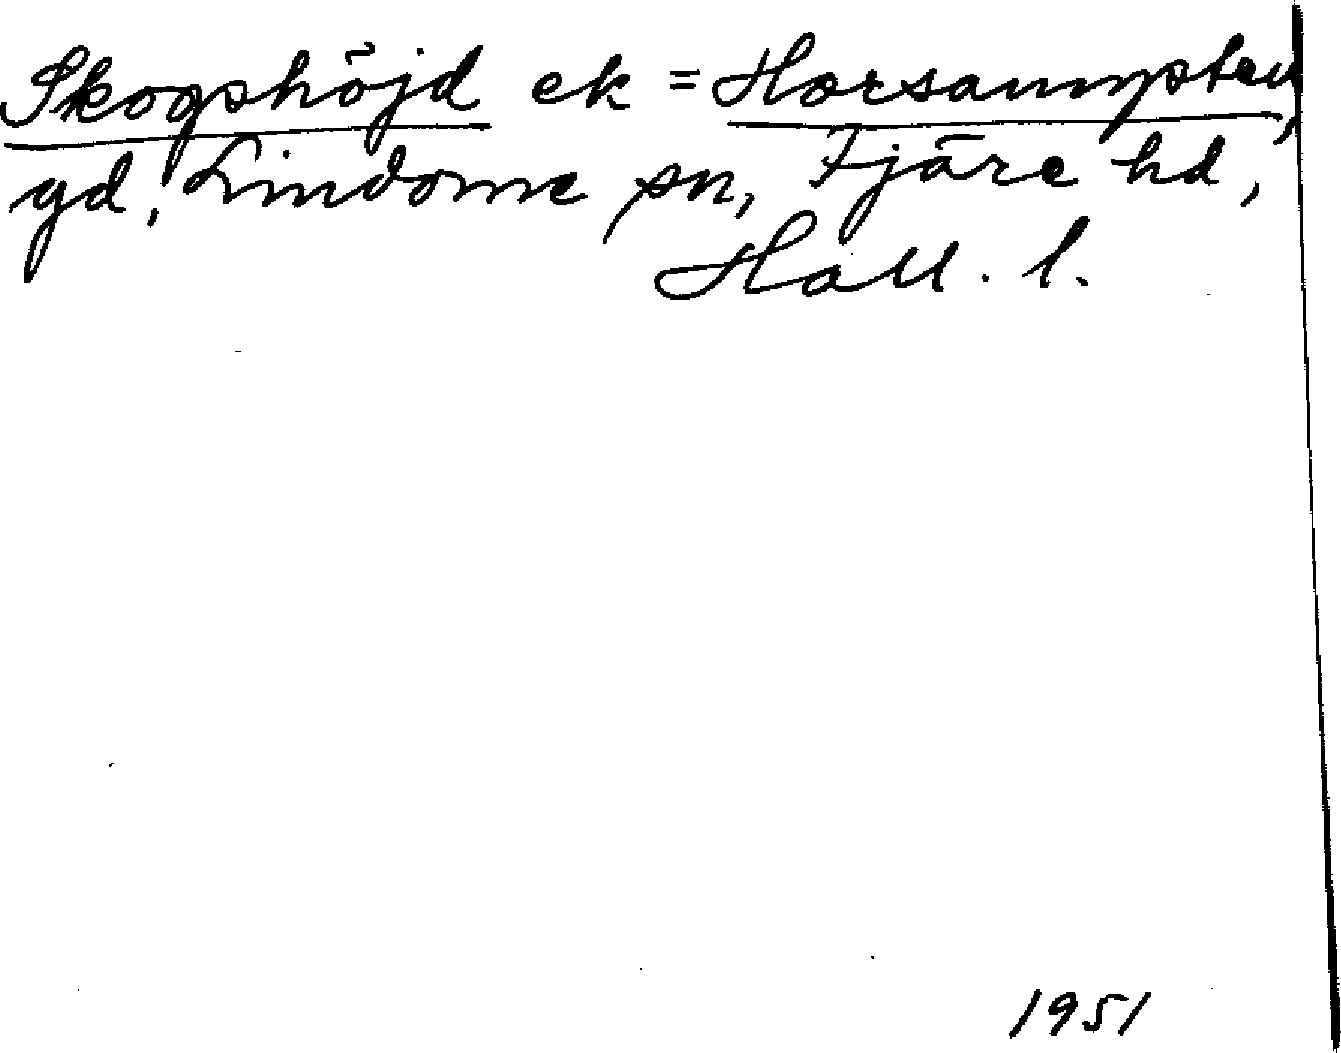 Skogshöjd ek = Horsamysten,
gd, Lindome sn, Fjäre hd,
Hall. l.
1951